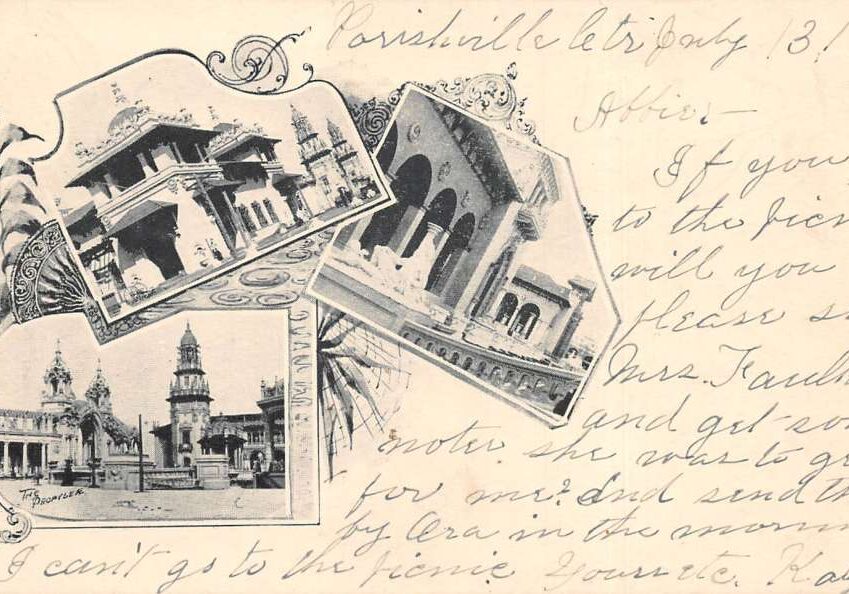 Parishville Ctr July 13,
Abbie:-
If you
to the picn
will you
please s
Mrs. Faulk
and get som
notes she was to g
for me? And send th
by Ora in the morni
I can't go to the picnic Yours etc. Kat
THE
PROPYLEA.